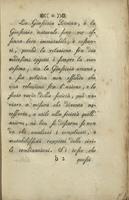 XIX
La Giustizia Divina, e la
Giustizia naturale sono per es-
senza loro immutabili, e costan-
ti, perchè la relazione fra due
medesimi oggetti è sempre la me-
desima; ma la Giustizia umana,
o sia politica non essendo che
una relazione fra l'azione, e lo
stato vario della società, può va-
riare, a misura che diventa ne-
cessaria, o utile alla società quell'
azione, nè ben si discerne se non
da chi analizzi i complicati, e
mutabilissimi rapporti delle civi-
li combinazioni. Si tosto che
b 2 questi